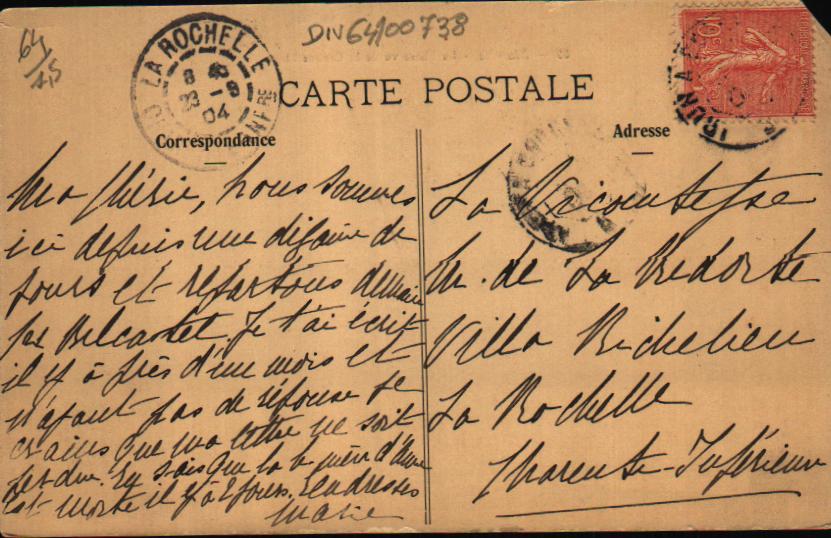 64
AS
DIV 64/00738
LA ROCHELLE
8
23 - 9
04
CARTE POSTALE
Correspondance
Adresse
Ma chérie, nous sommes
ici depuis une dizaine de
jours et repartons demain
Belcastel. Je t'ai écrit
il y a près d'un mois et
n'ayant pas de réponse je
crains que ma lettre ne soit
perdue. Tu sais que la mère d'Anne
est morte il y a 2 jours. Tendresses
Marie
La Vicomtesse
M. de La Redorte
Villa Richelieu
La Rochelle
Charente-Inférieure